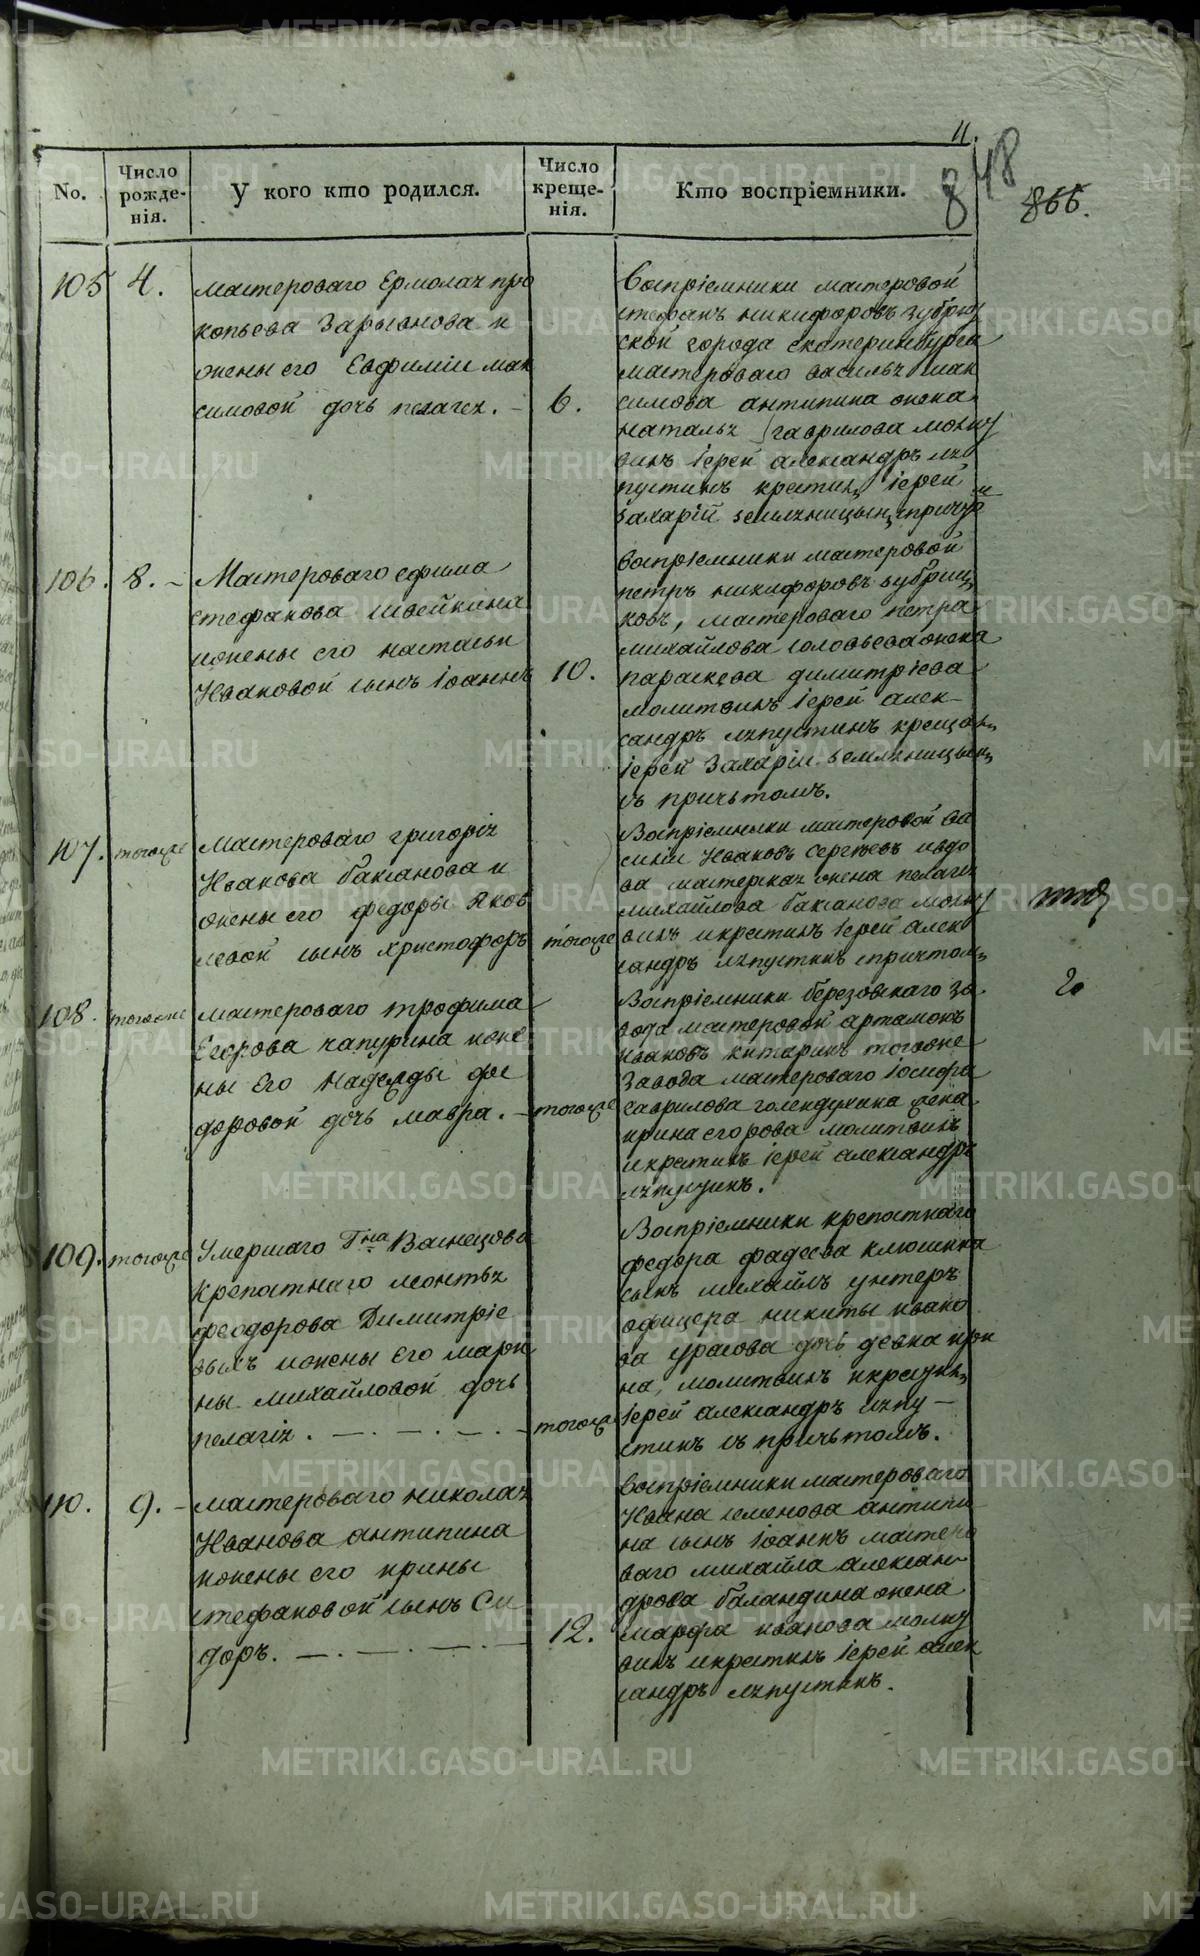 11.
848
866.
No.
Число рожде-нія.
У кого кто родился.
Число креще-нія.
Кто воспріемники.
105
4.
мастероваго Ермолая про
копьева Зырянова и
жены его Евфиміи мак
симовой дочь пелагея. –
6.
Воспріемники мастеровой
стефанъ никифоровъ зубриц
ской города екатеринбурга
мастероваго василья мак
симова антипина жена
наталья гаврилова молит
вилъ іерей александръ ляпустинъ крестил іерей
захарій земляницын с причто
106.
8. –
Мастероваго ефима
стефанова швейкина
ижены его настасьи
Ивановой сынъ Іоаннъ
10.
воспріемники мастеровой
петръ никифоровъ зубриц
ковъ, мастероваго петра
михайлова соловьева жена
параскева димитріева
молитвилъ іерей алек–
сандръ ляпустинъ крещен
іерей Захаріи земляницын
съ причьтомъ.
107.
тогоже
Мастероваго григорія
Иванова баксанова и
жены его федоры Яков
левой сынъ христофоръ
тогоже
Воспріемники мастеровой ва
силій Ивановъ Сергѣевъ ивдо
ва мастерская жена пелагея
михайлова баксанова молит
вилъ икрестилъ іерей алек
сандръ ляпустинъ спричтом
108.
тогоже
мастероваго трофима
Егорова чапурина ижe
ны его надежды фе
доровой дочь мавра. –
тогоже
Воспріемники березовскаго за
вода мастеровой артамонъ
ивановъ китаринъ тогоже
Завода мастероваго іосифа
гаврилова голендухина жена
ирина егорова молитвилъ
икрестилъ іерей александръ
ляпустинъ.
109.
тогоже
Умершаго Гна Васнецова
крепостнаго леонтья
феодорова Димитріе
выхъ ижены его мари
ны михайловой дочь
пелагія. –. –. –. –
тогоже
Воспріемники крепостнаго
федора фадеева клюшина
сынъ михайлъ унтеръ
офицера никиты ивано
ва урасова дочь девка ири
на, молитвилъ икрестил
іерей александръ ляпу–
стинъ съ причьтомъ.
110.
9. –
мастероваго николая
Иванова антипина
ижены его ирины
стефановой сынъ Си
доръ. –. –. –. –
12.
воспріемники мастероваго
Ивана семенова антипи
на сынъ Іоаннъ мастеро
ваго михайла алексан
дрова баландина жена
марфа иванова молит
вилъ икрестилъ іерей алек
сандръ ляпустинъ.
METRIKI.GASO-URAL.RU